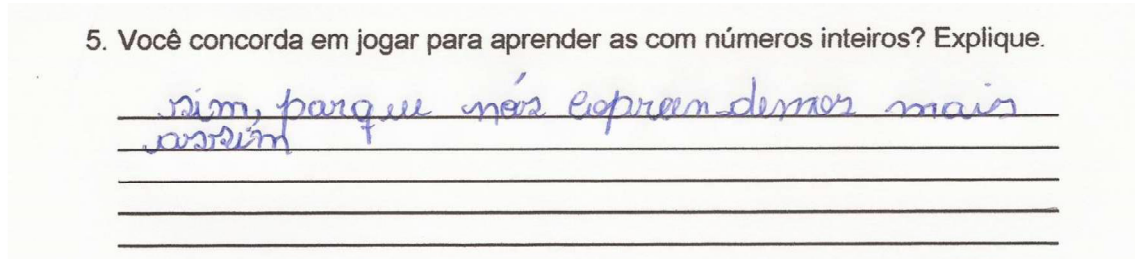 5. Você concorda em jogar para aprender as com números inteiros? Explique.
sim, porque nós aprendemos mais
assim